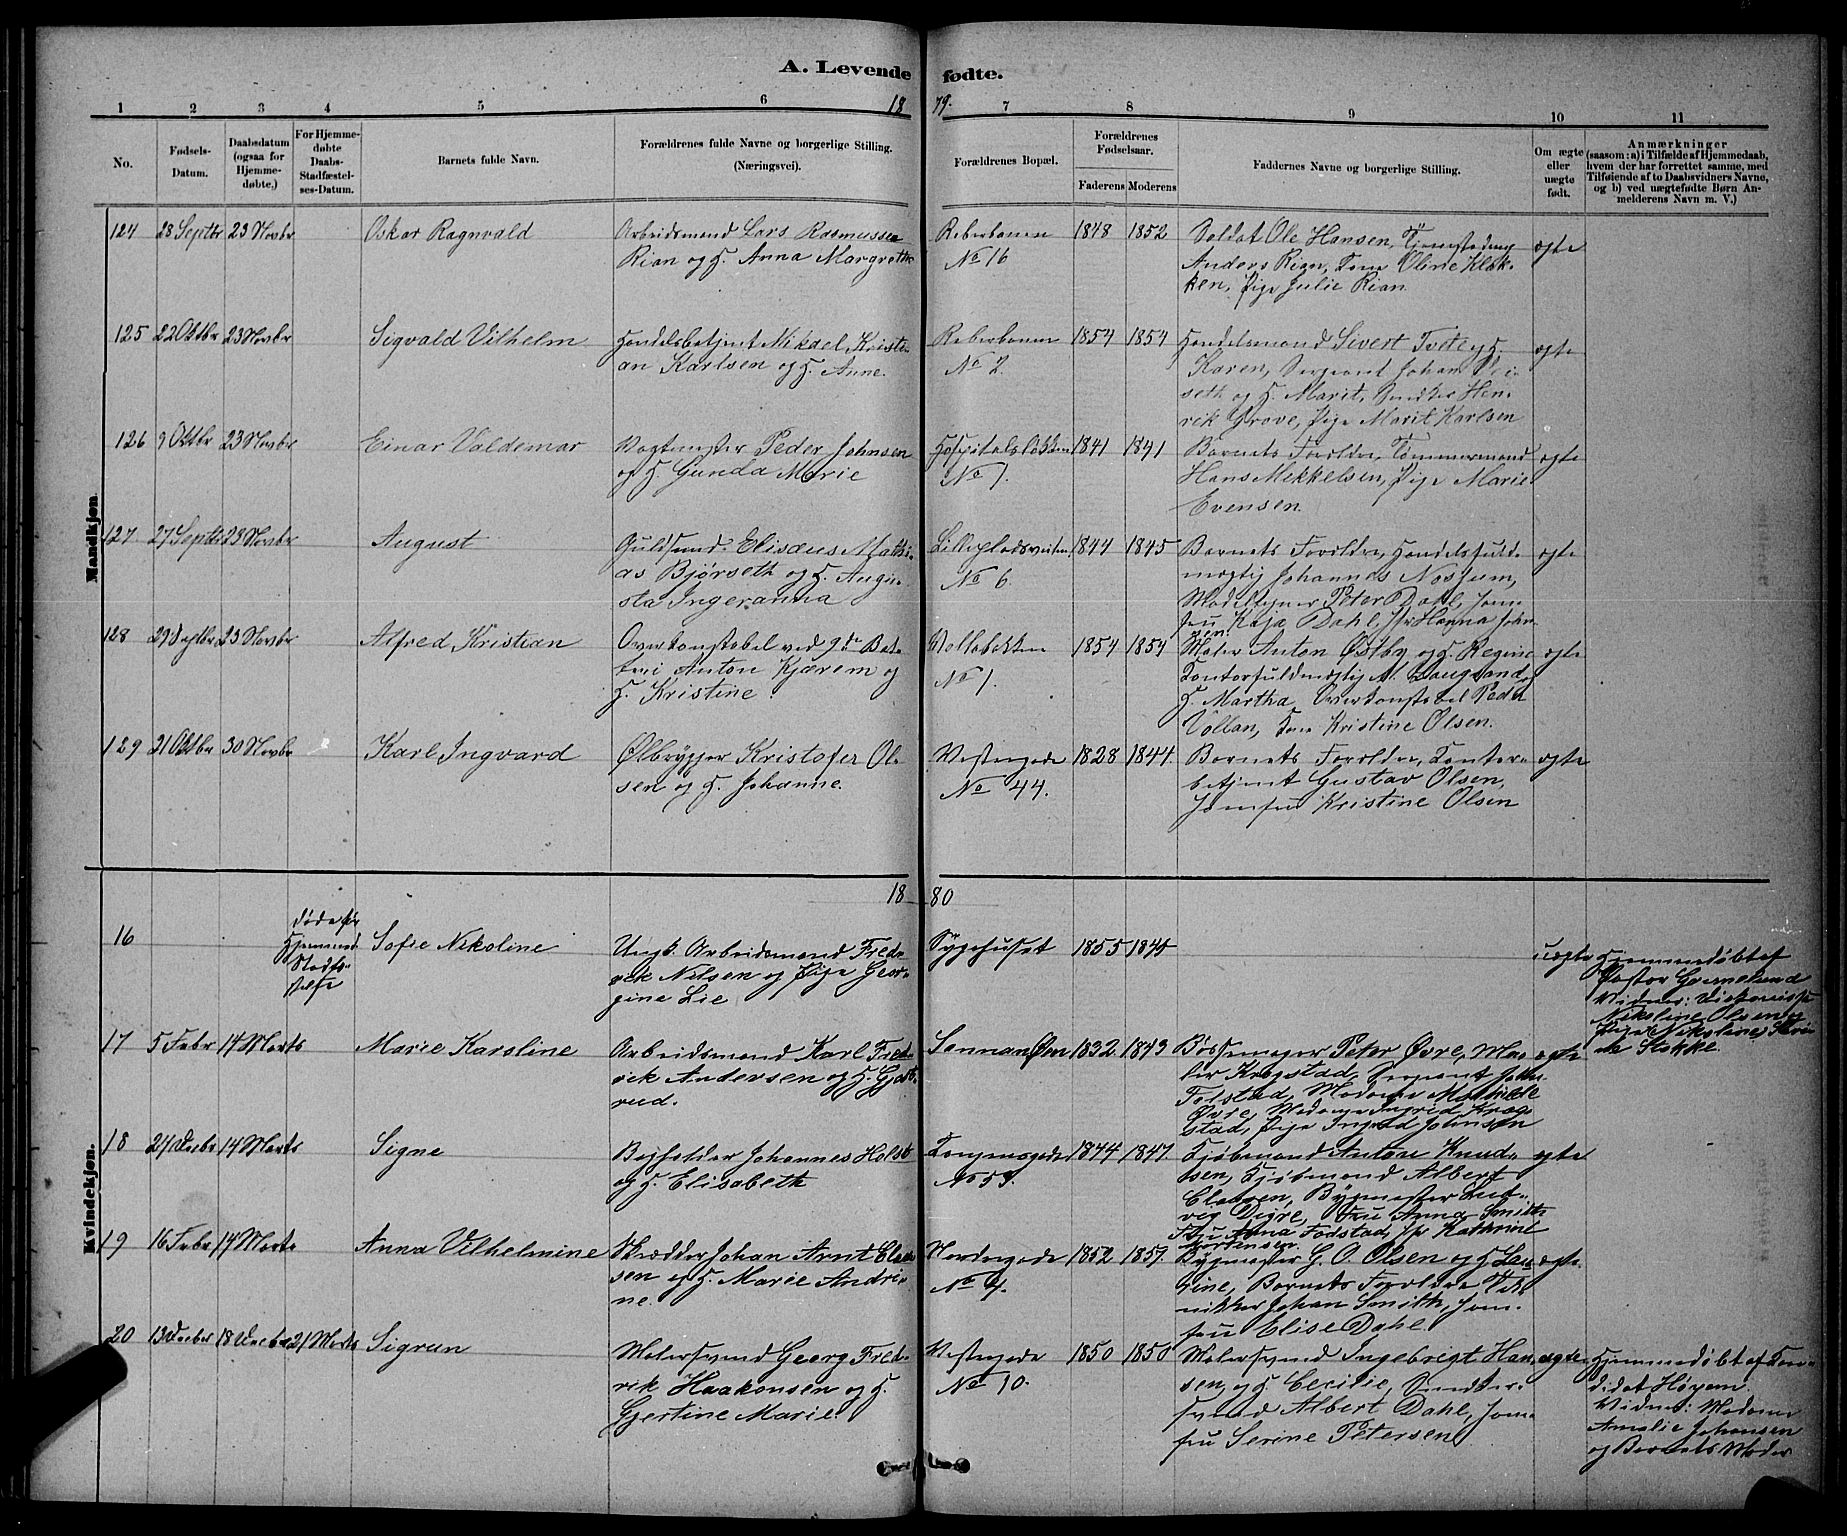 A. Levende fødte.
1 2 3 4 5 6 7 8 9 10 11
1879.
No.
Fødsels-
Datum.
Daabsdatum
(ogsaa for
Hjemme-
døbte,)
For Hjemme-
døbte
Daabs-
Stadfæstel-
ses-Datum.
Barnets fulde Navn.
Forældrenes fulde Navne og borgerlige Stilling.
(Næringsvei).
Forældrenes Bopæl.
Forældrenes
Fødselsaar.
Faderens Moderens
Faddernes Navne og borgerlige Stilling.
Om ægte
eller
uægte
født.
Anmærkninger
(saasom: a) i Tilfælde af Hjemmedaab,
hvem der har forrettet samme, med
Tilføiende af to Daabsvidners Navne,
og b) ved uægtefødte Børn An-
melderens Navn m. V.)
Mandkjøn.
124 28 Septbr 23 Novbr
Oskar Ragnvald
Arbeidsmand Lars Rasmussen
Rian og H. Anna Margrethe
Reberbanen
No 16
1848 1852
Soldat Ole Hansen,
Anders Rian, Kone Oline Klok-
ken, Pige Julie Rian
ægte
125 22 Oktbr 23 Novbr
Sigvald Vilhelm
Handelsbetjent Mikael Kristi-
an Karlsen og H. Anne.
Reberbanen
No 2.
1854 1854
Handelsmand Sivert Tvete og H.
Karen, Sergeant Johan
seth og H. Marit, Snedker Hen-
rik Grove, Pige Marit Karlsen
ægte
126 9 Oktbr 23 Novbr
Einar Valdemar
Vagtmester Peder Johnsen
og H. Gunda Marie
Hospitalsløkken
No 1.
1841 1841
Barnets Forældre, Tømmermand
Hans Mikkelsen, Pige Marie
Evensen
ægte
127 27 Septbr 23 Novbr
August
Guldsmed Elisæus Mathi-
as Bjørseth og H. Augu-
sta Ingeranna
No 6.
1844 1845
Barnets Forældre, Handelsfuld-
mægtig Johannes
Peter Dahl, Jom-
fru Kaja Dahl, Jfr Hanna John-
sen
ægte
128 29 Septbr 23 Novbr
Alfred Kristian
Overkonstabel ved 9de Bat-
teri Anton Kjærem og
H. Kristine
Vollabakken
No 1.
1854 1854
Maler Anton Østby og H. Regine
Kontorfuldmægtig M. Daugstad og
H. Martha, Overkonstabel Peder
Vollan, Kone Kristine Olsen.
ægte
129 21 Oktbr 30 Novbr
Karl Ingvard
Ølbrygger Kristofer Ol-
sen og H. Johanne.
Vestergade
No 44.
1828 1844.
Barnets Forældre, Kontor-
betjent Gustav Olsen,
Jomfru Kristine Olsen
ægte
1880
Kvindekjøn.
16
døde før
Hjemmed.
Stadfæ-
stelse
Sofie Nikoline
Ungk. Arbeidsmand Fred-
rik Nilsen og Pige Geor-
gine Lie
Sygehuset
1855 1845
uægte
Hjemmedøbt af
Pastor
Vidner:
Nikoline Olsen og
Pige Nikoline
Stokke.
17 5 Febr 14 Marts
Marie Karoline
Arbeidsmand Karl Fred-
rik Andersen og H. Gjert-
rud.
1832 1843
Bøssemager Peter Øvre, Ma-
ler Krogstad, Sergeant John
Folstad, Madame Mathilde
Øvre, Madame Ingrid Krog-
stad, Pige Ingrid Johnsen
ægte
18 27 Decbr 14 Marts
Signe
Bogholder Johannes Holst
og H. Elisabeth
Kongensgade
No 53.
1844 1847
Kjøbmand Anton Knud-
sen, Kjøbmand Albert
Clausen, Bygmester Lud-
vig Digre, Fru Anna Smith
Fru Anna Fodstad, Jfr Kathrine
Mortensen.
ægte
19 16 Febr 14 Marts
Anna Vilhelmine
Skrædder Johan Arnt Cla-
sen og H. Marie Andri-
ne.
Nordregade
No 4.
1852 1857.
Bygmester G. O. Olsen og H. Lau-
rine, Barnets Forældre
Johan Smith, Jom-
fru Elise Dahl.
ægte
20 13 Decbr 18 Decbr 21 Marts
Sigrun
Malersvend Georg Fred-
rik Haakonsen og H.
Gjertine Marie.
Vestergade
No 10.
1850 1850
Malersvend Ingebrigt Han-
sen, og H. Cecilie, Snedker-
svend Albert Dahl, Jom-
fru Serine Petersen
ægte
Hjemmedøbt af Kan-
didat Høyem.
Vidner: Madame
Amalie Johansen
og Barnets Moder